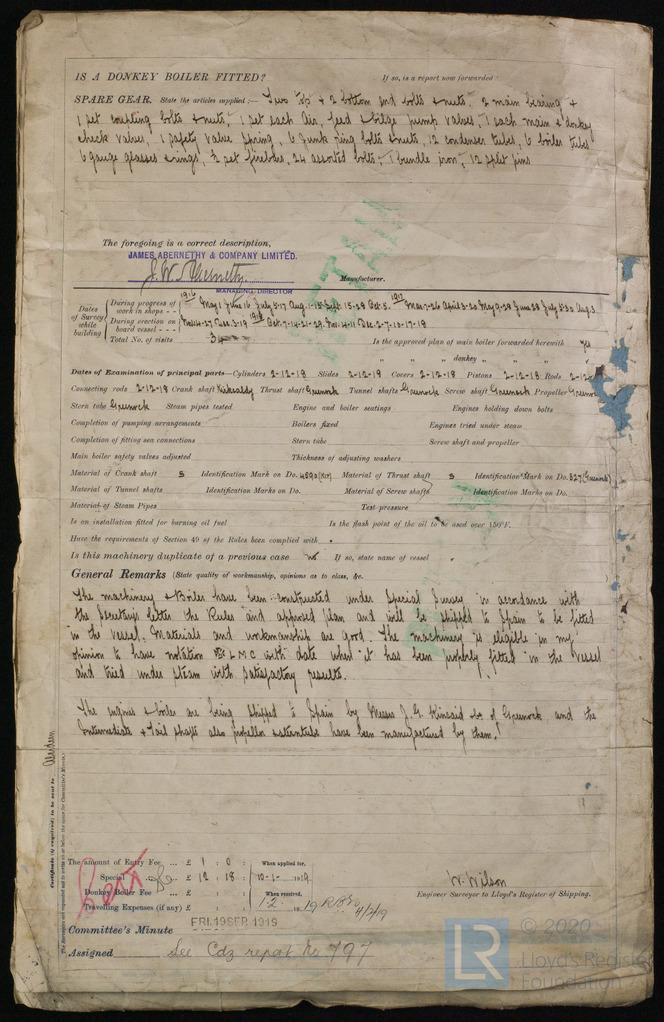 IS A DONKEY BOILER FITTED? If so, is a report now forwarded
SPARE GEAR. State the articles supplied :— Two top & 2 bottom end bolts & nuts, 2 main bearing &
1 set coupling bolts & nuts, 1 set each Air, feed & bilge pump valves, 1 each main & donkey
check valves, 1 safety valve spring, 6 junk ring bolts & nuts, 12 condenser tubes, 6 boiler tubes
6 gauge glasses & rings, ½ set firebars, 24 assorted bolts, 1 bundle iron, 12 split pins
The foregoing is a correct description,
JAMES ABERNETHY & COMPANY LIMITED.
J. W. Abernethy. Manufacturer.
MANAGING DIRECTOR
Dates of Survey while building
During progress of work in shops - - 1916 May 1 June 16 July 5-17 Aug. 1-15 Sept. 15-29 Oct. 5. 1917 Mar 7-26 April 3-20 May 9-29 June 28 July 5-30 Aug 3
During erection on board vessel - - - Nov 14-27 Dec 3-19 1918 Oct. 7-14-21-29. Nov. 4-11 Dec. 2-7-10-17-18
Total No. of visits 34 Is the approved plan of main boiler forwarded herewith yes
" " " donkey " " "
Dates of Examination of principal parts—Cylinders 2-12-18 Slides 2-12-18 Covers 2-12-18 Pistons 2-12-18 Rods 2-12-
Connecting rods 2-12-18 Crank shaft Kirkcaldy Thrust shaft Greenock Tunnel shafts Greenock Screw shaft Greenock Propeller Greenock
Stern tube Greenock Steam pipes tested Engine and boiler seatings Engines holding down bolts
Completion of pumping arrangements Boilers fixed Engines tried under steam
Completion of fitting sea connections Stern tube Screw shaft and propeller
Main boiler safety valves adjusted Thickness of adjusting washers
Material of Crank shaft S Identification Mark on Do. 4890 (KM) Material of Thrust shaft S Identification Mark on Do. 827 (Greenock)
Material of Tunnel shafts Identification Marks on Do. Material of Screw shafts Identification Marks on Do.
Material of Steam Pipes Test pressure
Is an installation fitted for burning oil fuel Is the flash point of the oil to be used over 150°F.
Have the requirements of Section 49 of the Rules been complied with
Is this machinery duplicate of a previous case No If so, state name of vessel
General Remarks (State quality of workmanship, opinions as to class, &c.
The machinery & Boiler have been constructed under Special Survey in accordance with
the Secretarys letter the Rules and approved plan and will be shipped to Spain to be fitted
in the vessel. Materials and workmanship are good. The machinery is eligible in my
opinion to have notation LMC with date when it has been properly fitted in the vessel
and tried under steam with satisfactory results.
The engines & boiler are being shipped to Spain by Messrs J. G. Kincaid & Co of Greenock and the
Intermediate & Tail shafts also propellor & sterntube have been manufactured by them.
Certificate (if required) to be sent to Aberdeen
The Surveyors are requested not to write on or below the space for Committee's Minute.
The amount of Entry Fee ... £ 1 : 0 : When applied for,
Special ... £ 12 : 18 : 10-1-1919
Donkey Boiler Fee ... £ : : When received,
Travelling Expenses (if any) £ : : 1-2 1919 4/2/19
Cert
W. Wilson
Engineer Surveyor to Lloyd's Register of Shipping.
Committee's Minute FRI. 19 SEP. 1919
Assigned See Cdz report No 797
LR © 2020
Lloyd's Register
Foundation